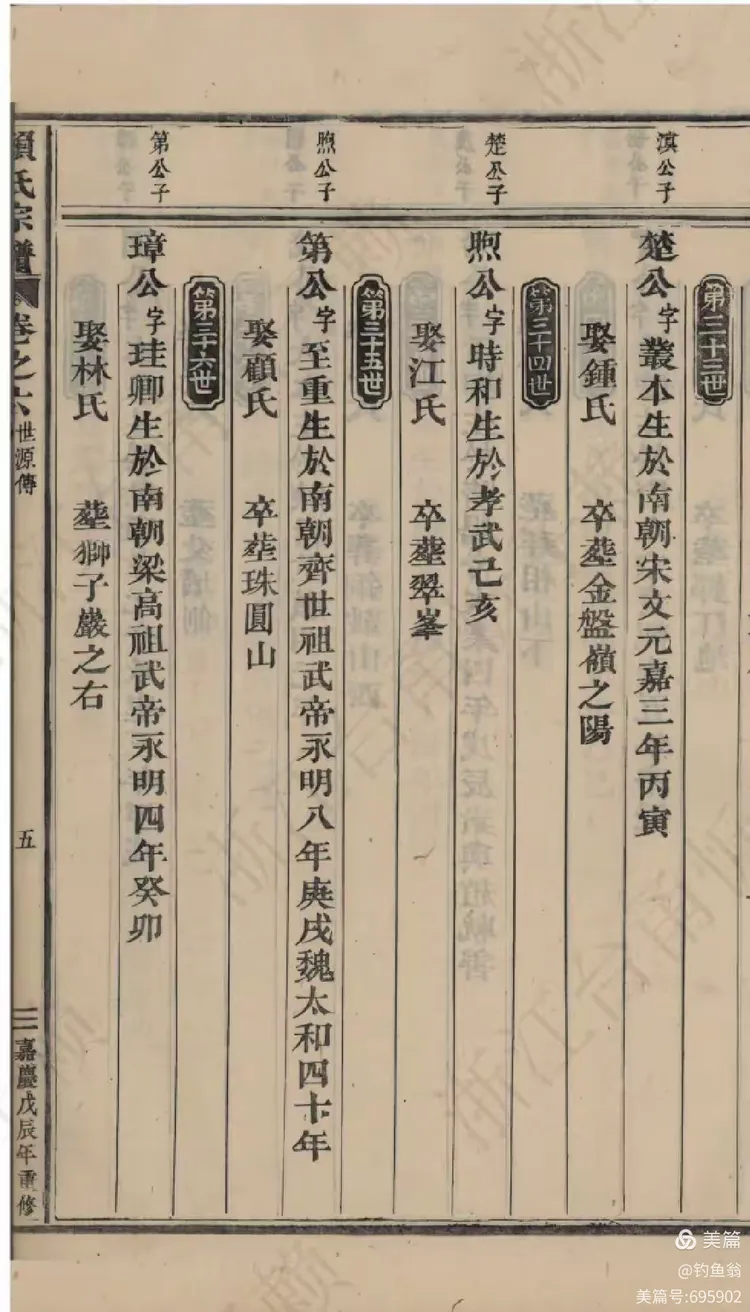 滇公子
第三十三世
楚公字叢本生於南朝宋文元嘉三年丙寅
娶鍾氏 卒塟金盤嶺之陽
楚公子
第三十四世
煦公字時和生於孝武己亥
娶江氏 卒塟翠峯
煦公子
第三十五世
第公字至重生於南朝齊世祖武帝永明八年庚戌魏太和四十年
娶顧氏 卒塟珠圓山
第公子
第三十六世
璋公字珪卿生於南朝梁高祖武帝永明四年癸卯
娶林氏 塟獅子巖之右
氏宗譜 卷之六 世源傳 五 嘉慶戊辰年重修
美篇
@钓鱼翁
美篇号:695902